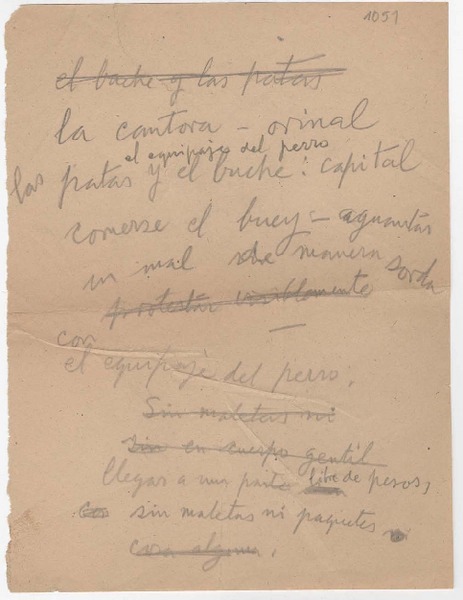 1051
el buche y las patas
la cantora – orinal
el equipaje del perro
las patas y el buche: capital
comerse el buey – aguantar
un mal de manera sorda
protestar visiblemente
con
el equipaje del perro.
Sin maletas ni
Sin en cuerpo gentil
llegar a una parte libre de pesos,
sin maletas ni paquetes
cosa alguna.